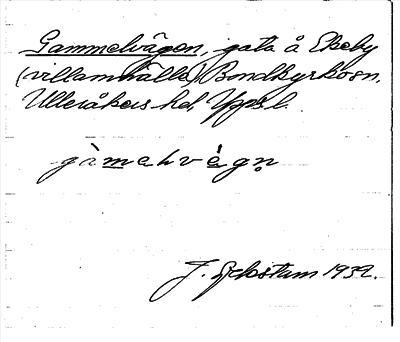 Gammelvägen, gata å Ekeby
(villasamhälle) Bondkyrko sn.
Ulleråkers hd, Upps. l.
J. Sahlström 1932.